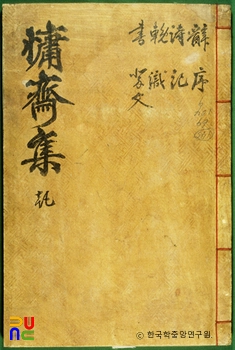 辭序
詩記
輓識
書祭文
慵齋集
ⓒ 한국학중앙연구원